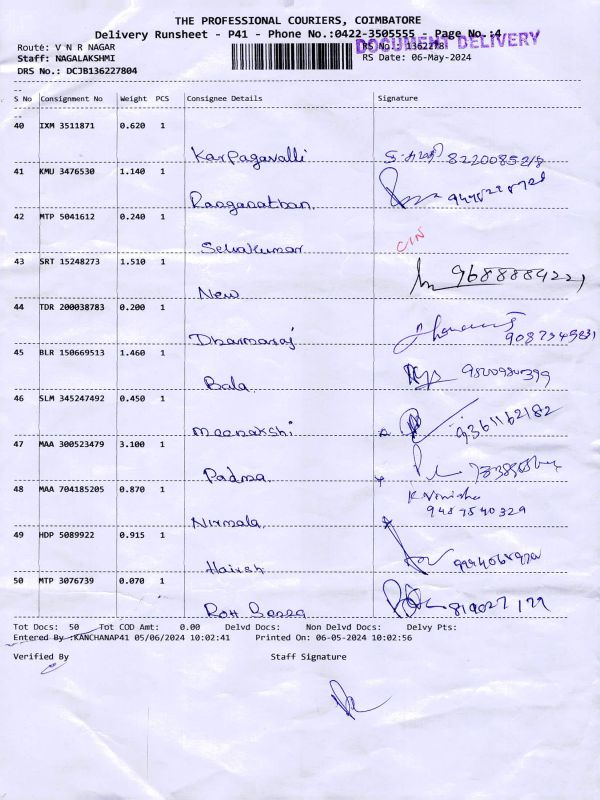 THE PROFESSIONAL COURIERS, COIMBATORE
Delivery Runsheet - P41 - Phone No.:0422-3505555 - Page No.:4
DOCUMENT DELIVERY
Route: V N R NAGAR RS No.: 1362278
Staff: NAGALAKSHMI RS Date: 06-May-2024
DRS No.: DCJB136227804
S No Consignment No Weight PCS Consignee Details Signature
40 IXM 3511871 0.620 1
Karpagavalli
41 KMU 3476530 1.140 1
Raaganathan
42 MTP 5041612 0.240 1
Selvakumar C/N
43 SRT 15248273 1.510 1
New 9688884221
44 TDR 200038783 0.200 1
Dharmaraj
45 BLR 150669513 1.460 1
Bala
46 SLM 345247492 0.450 1
Meenakshi 9361162182
47 MAA 300523479 3.100 1
Padma
48 MAA 704185205 0.870 1
Nirmala 9487540329
49 HDP 5089922 0.915 1
Harish
50 MTP 3076739 0.070 1
Tot Docs: 50 Tot COD Amt: 0.00 Delvd Docs: Non Delvd Docs: Delvy Pts:
Entered By :KANCHANAP41 05/06/2024 10:02:41 Printed On: 06-05-2024 10:02:56
Verified By Staff Signature